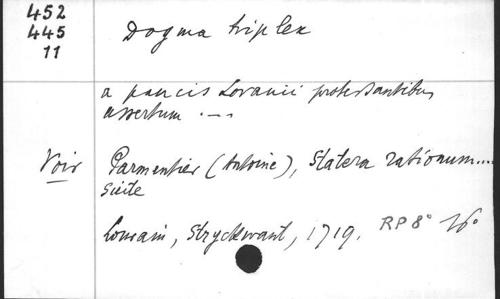 452
445
11
Dogma triplex
a paucis Lovanii protestantibus
assertum . — .
Voir Parmentier (Antoine), Statera rationum....
Suite
Louvain, Stryckwant, 1719. RP 8° 16°